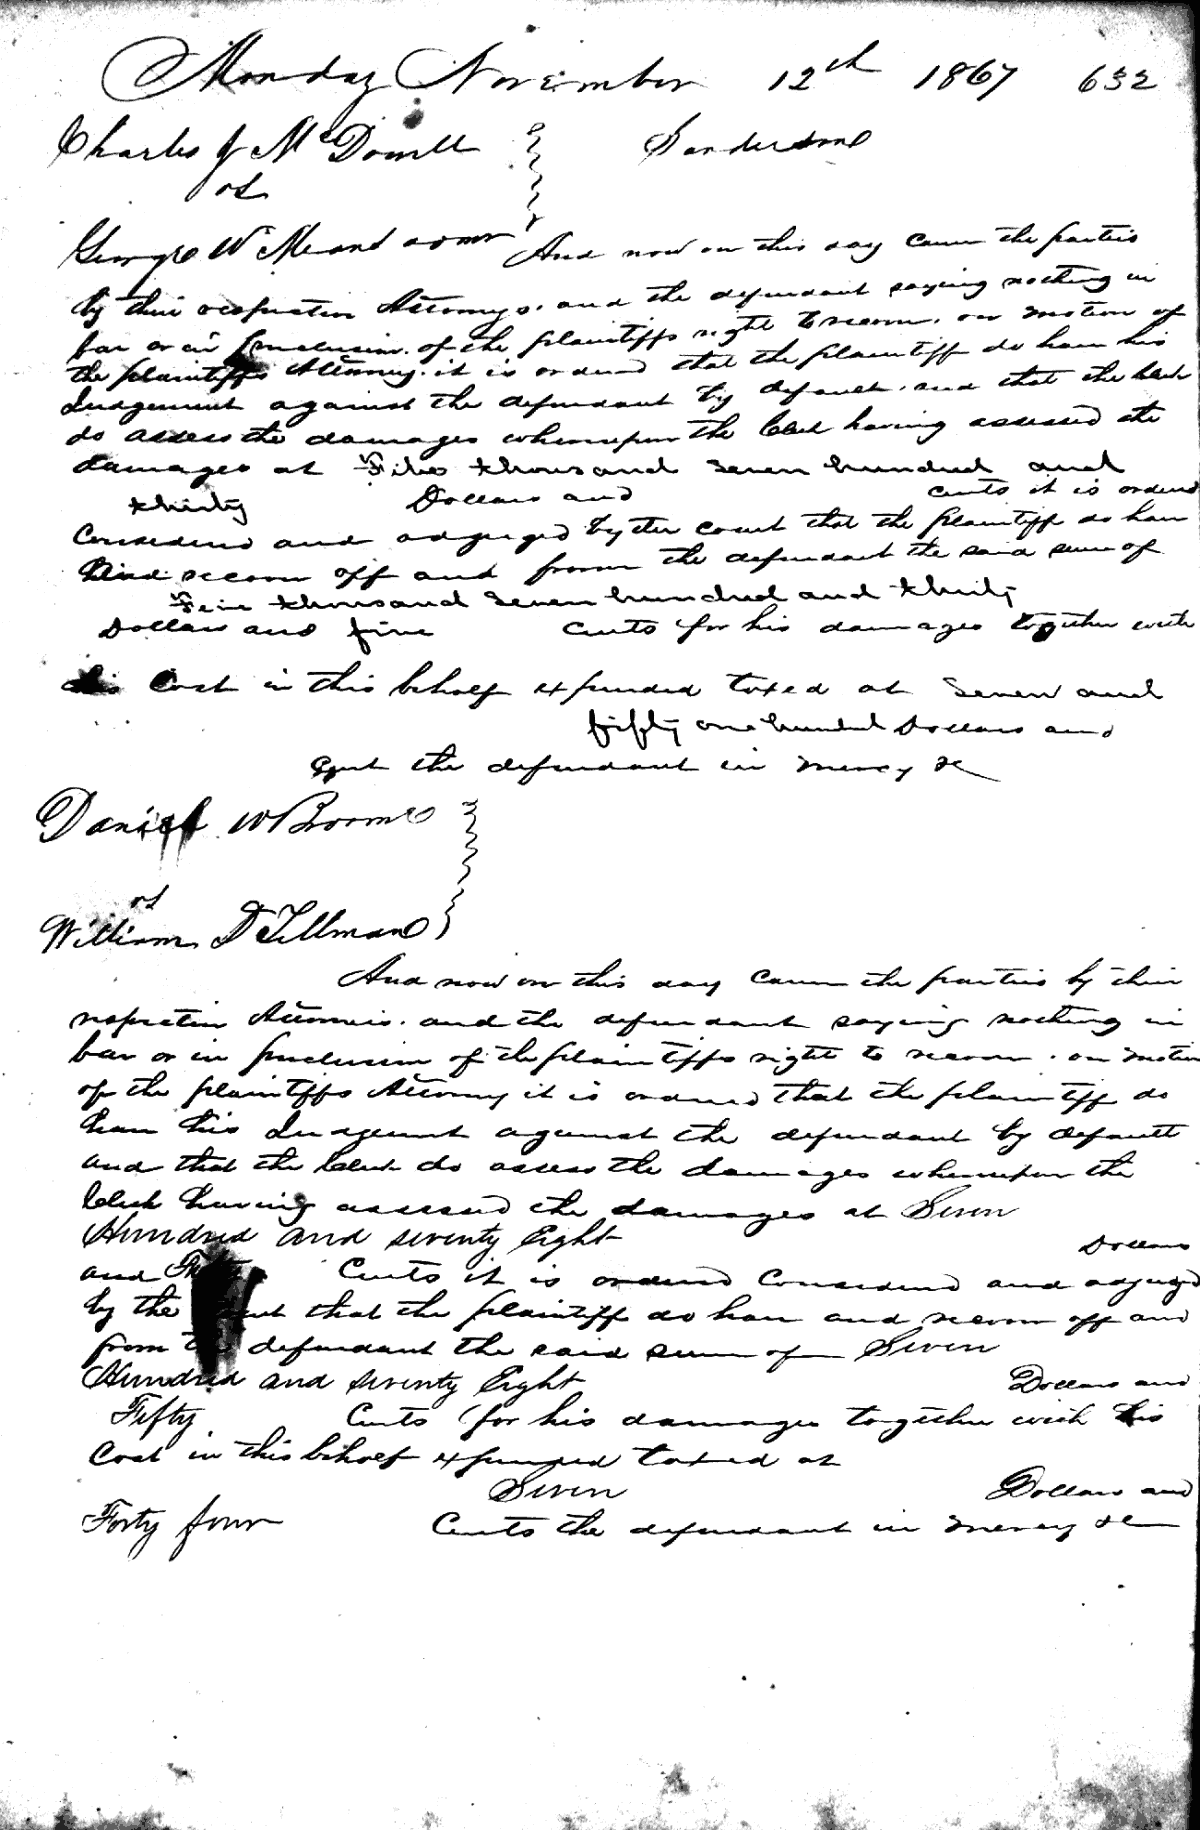 Monday November 12th 1867 632
Charles J McDowell Sanderson
vs
George W Means admr And now on this day came the parties
by their respective Attorneys. and the defendant saying nothing in
bar or in preclusion of the plaintiffs right to recover. on motion of
the plaintiffs Attorney. it is ordered that the plaintiff do have his
Judgement against the defendant by default. and that the Clerk
do assess the damages whereupon the Clerk having assessed the
damages at Five thousand seven hundred and
thirty Dollars and cents it is ordered
Considered and adjudged by the court that the plaintiff do have
and recover off and from the defendant the said sum of
Five thousand seven hundred and thirty
Dollars and five Cents for his damages together with
his Cost in this behalf expended taxed at Seven and
fifty one hundred Dollars and
the defendant in mercy &c
Daniel W Broome
vs
William D Tillman
And now on this day came the parties by their
respective Attorneis. and the defendant saying nothing in
bar or in preclusion of the plaintiffs right to recover. on motion
of the plaintiffs Attorney it is ordered that the plaintiff do
have his Judgement against the defendant by default
and that the Clerk do assess the damages whereupon the
Clerk having assessed the damages at Seven
Hundred and seventy Eight Dollars
and Cents it is ordered Considered and adjudged
by the that the plaintiff do have and recover off and
from the defendant the said sum of Seven
Hundred and seventy Eight Dollars and
Fifty Cents for his damages together with his
Cost in this behalf expended taxed at
Seven Dollars and
Forty four Cents the defendant in mercy &c